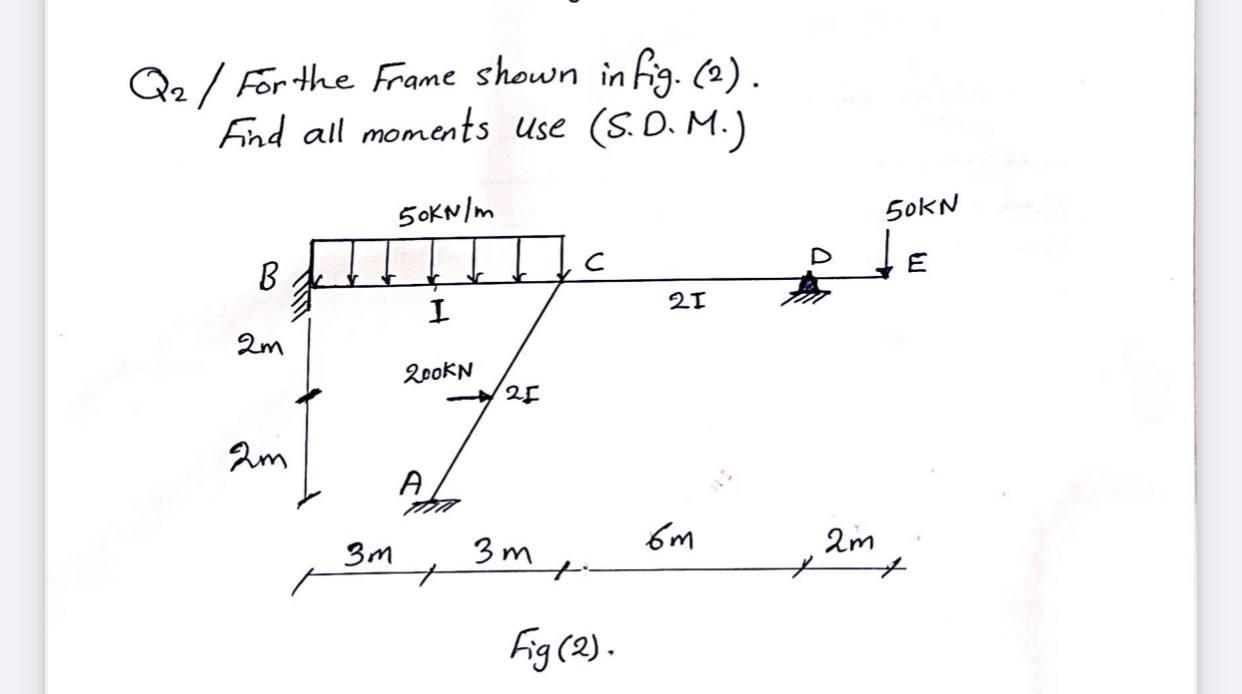 Q2 / For the Frame shown in fig. (2).
Find all moments use (S.D.M.)
50KN/m
50KN
B
C
D
E
I
2I
2m
200KN
2I
2m
A
3m
3m
6m
2m
Fig (2).